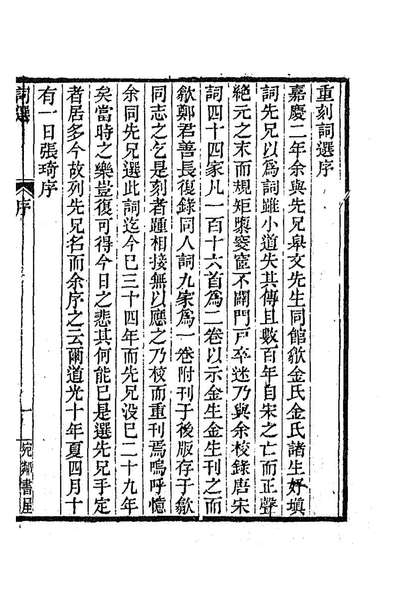 重刻詞選序
嘉慶二年余與先兄皋文先生同館歙金氏金氏諸生好填
詞先兄以爲詞雖小道失其傳且數百年自宋之亡而正聲
絕元之末而規矩隳窔宧不闢門戸卒迷乃與余校錄唐宋
詞四十四家凡一百十六首爲二卷以示金生金生刊之而
歙鄭君善長復錄同人詞九家爲一卷附刊于後版存于歙
同志之乞是刻者踵相接無以應之乃校而重刊焉嗚呼憶
余同先兄選此詞迄今已三十四年而先兄沒已二十九年
矣當時之樂豈復可得今日之悲其何能已是選先兄手定
者居多今故列先兄名而余序之云爾道光十年夏四月十
有一日張琦序
詞選
序
一
宛鄰書屋